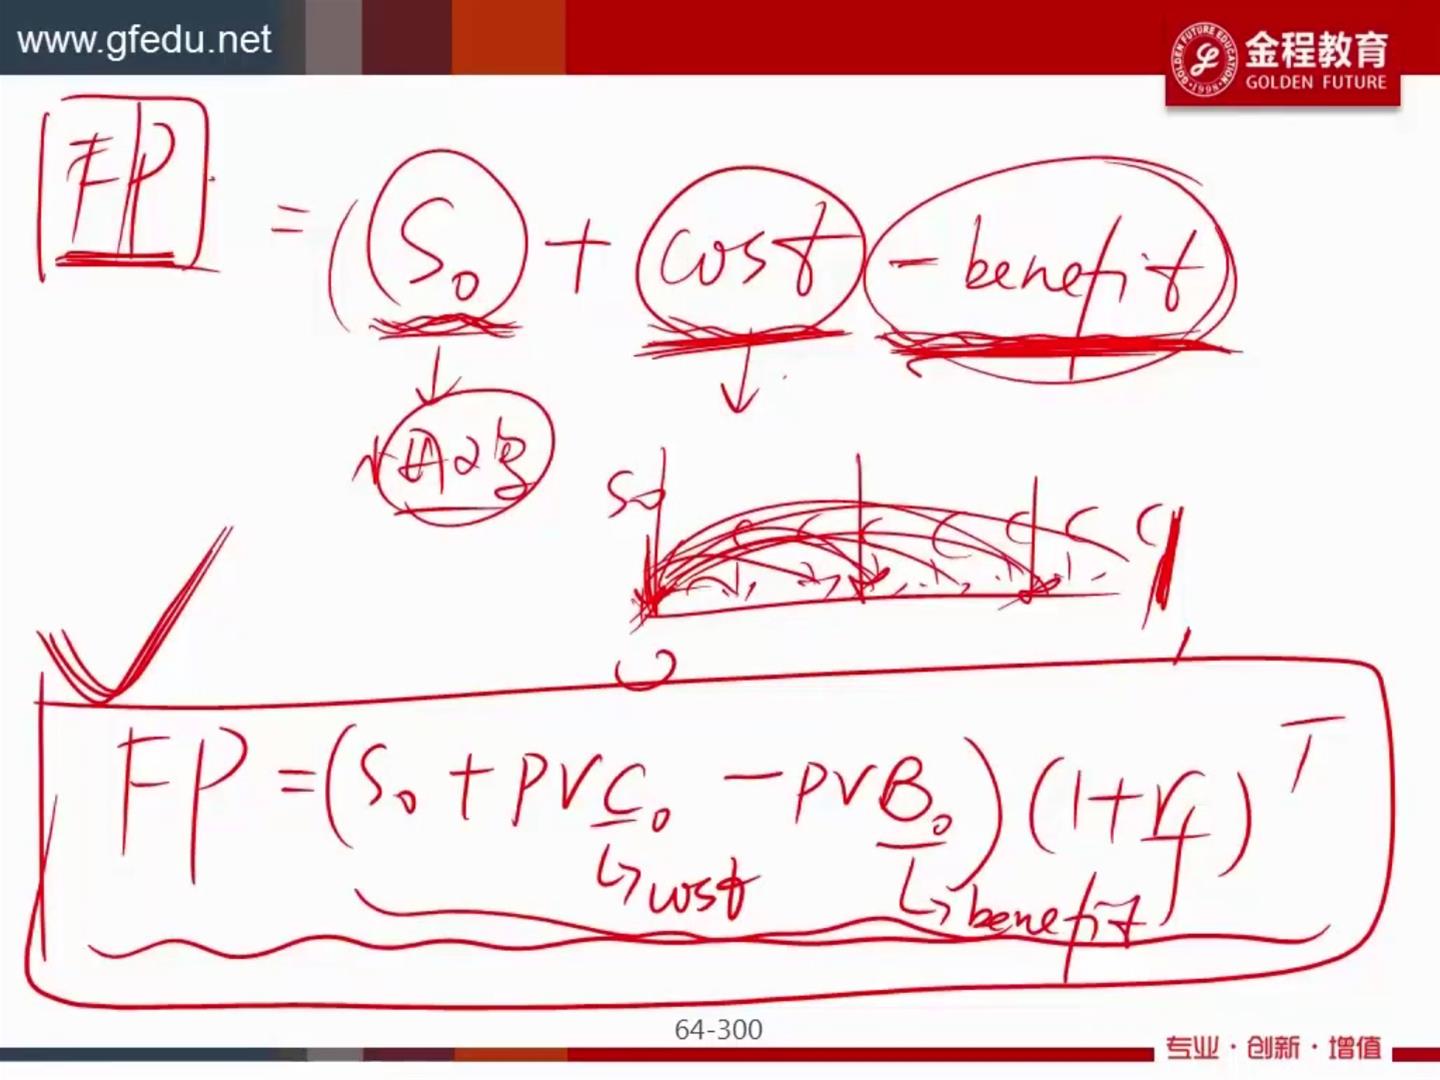 www.gfedu.net
金程教育
GOLDEN FUTURE
FP = (S₀ + cost - benefit
S₀
C C C C C C C
0
FP = (S₀ + PVC₀ - PVB₀)(1+rf)ᵀ
↳ cost ↳ benefit
64-300
专业·创新·增值